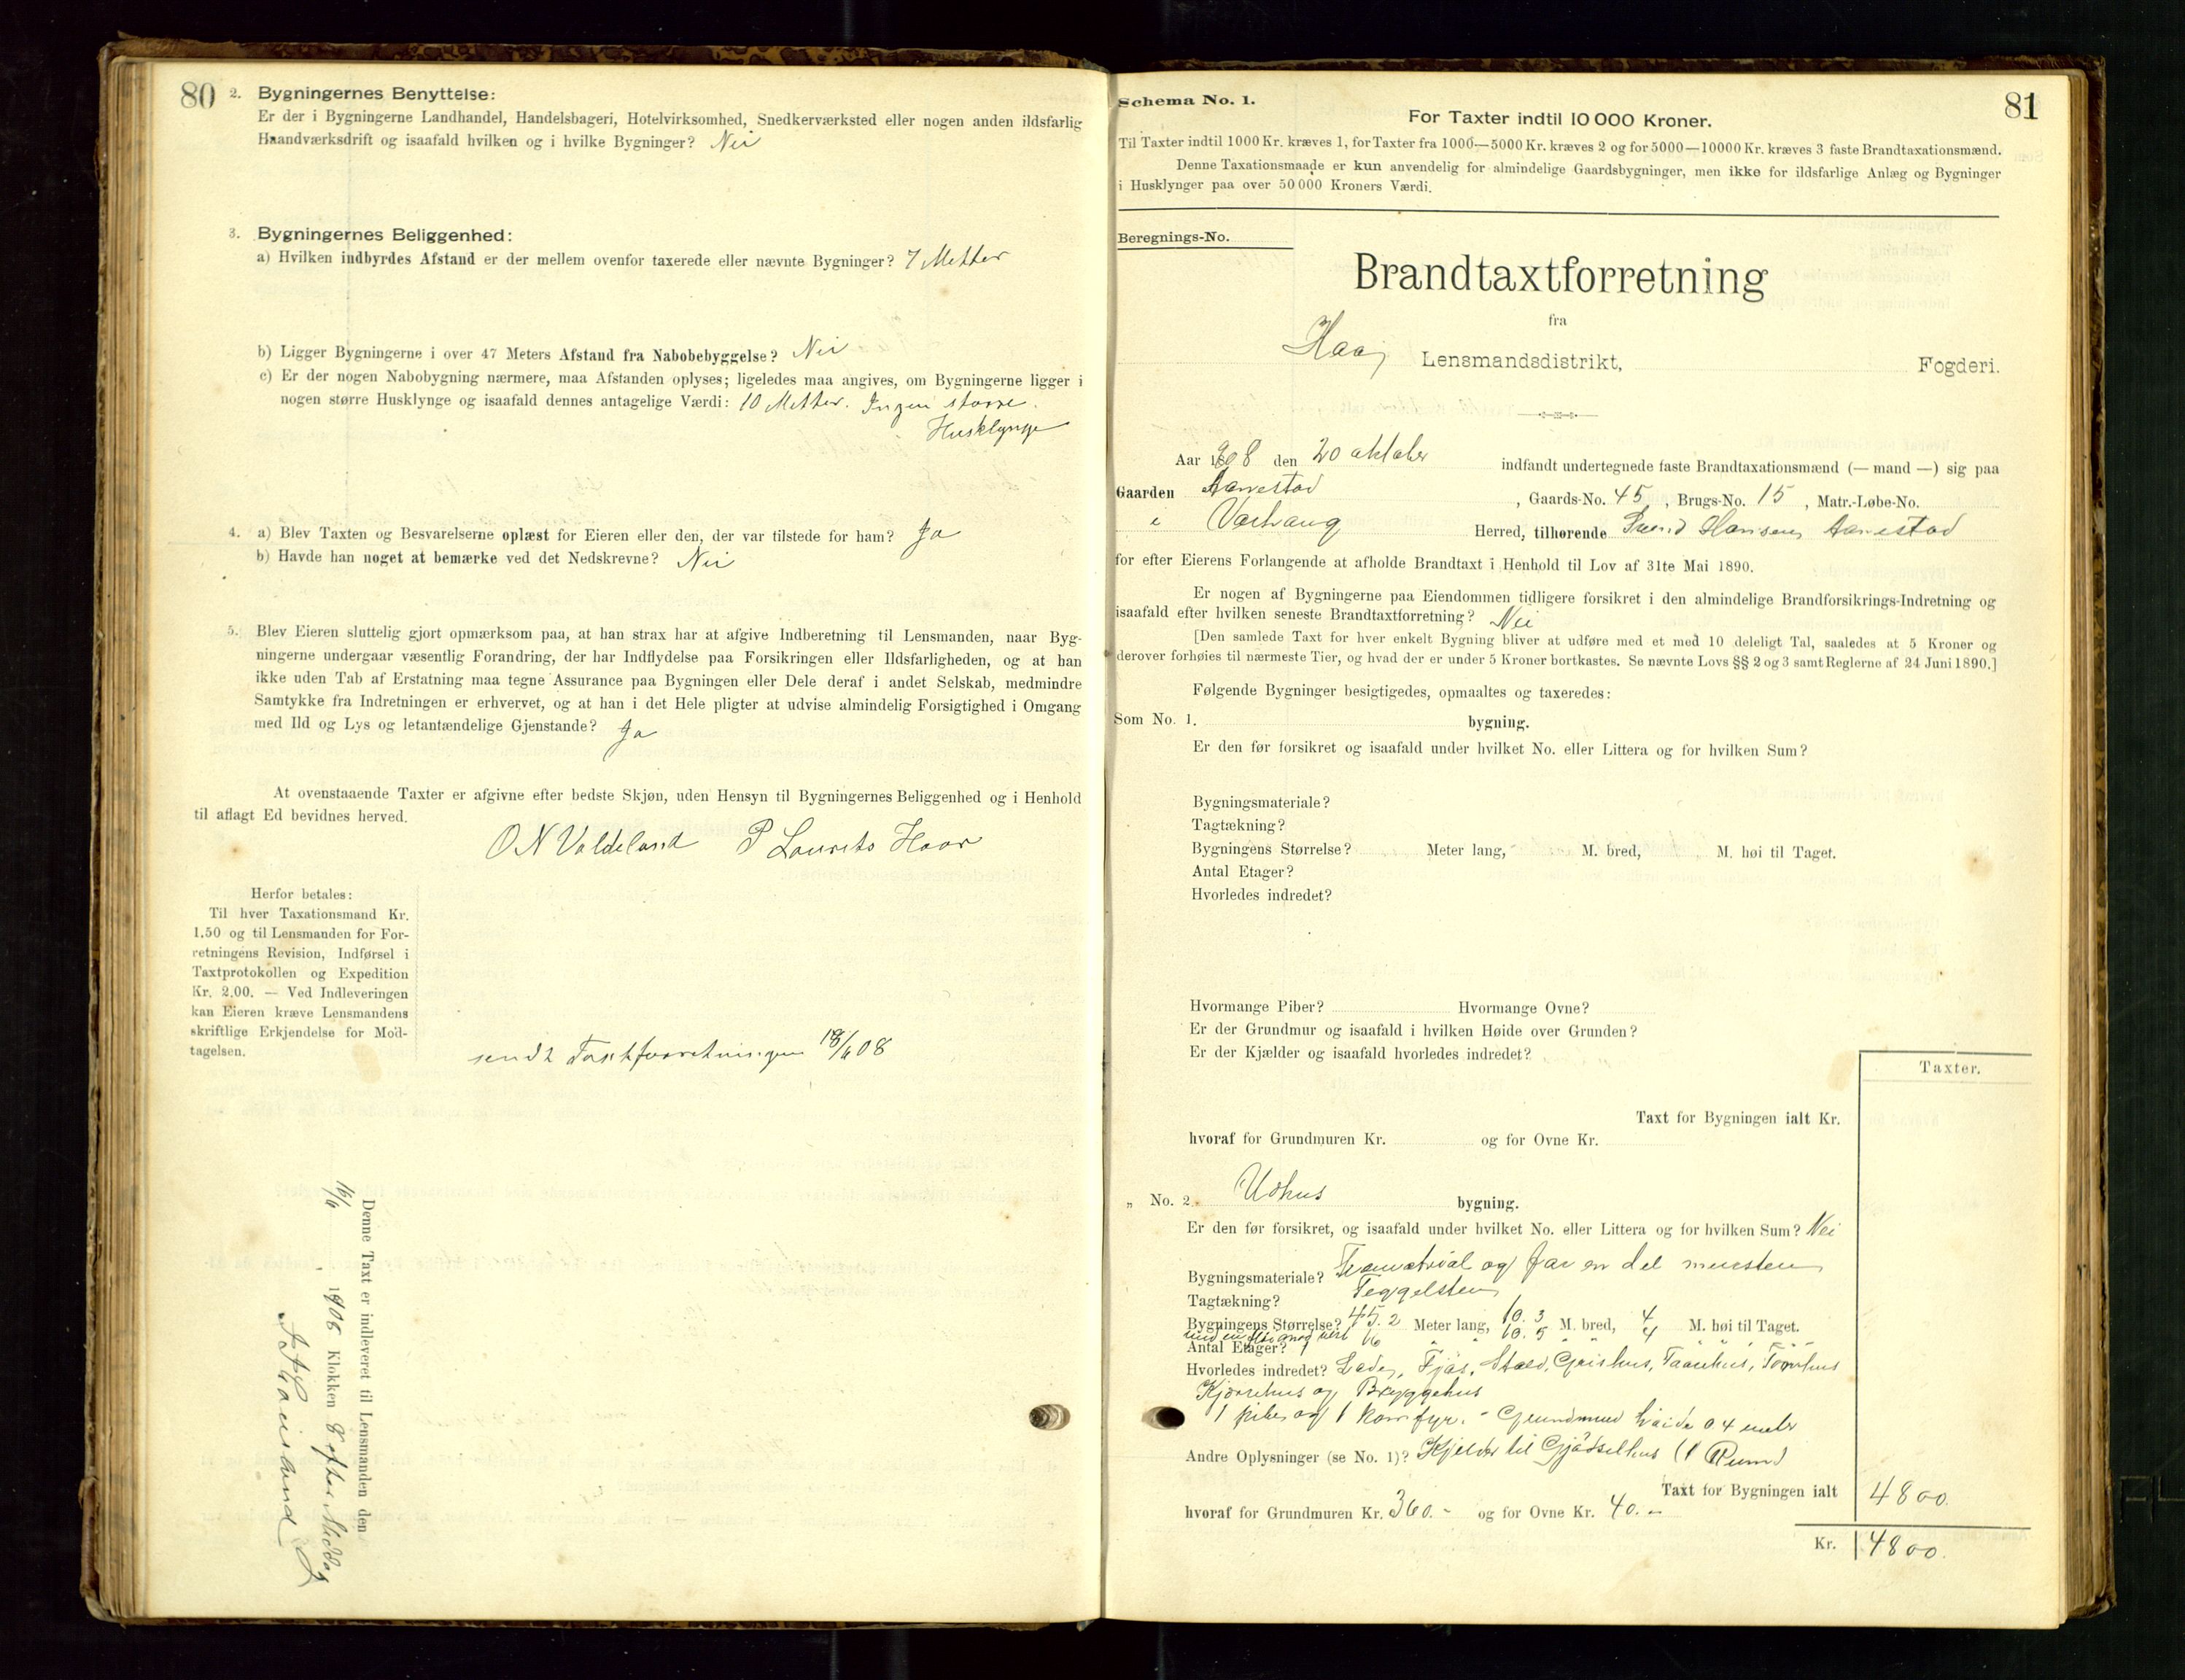 80
2. Bygningernes Benyttelse:
Er der i Bygningerne Landhandel, Handelsbageri, Hotelvirksomhed, Snedkerværksted eller nogen anden ildsfarlig
Haandværksdrift og isaafald hvilken og i hvilke Bygninger? Nei
3. Bygningernes Beliggenhed:
a) Hvilken indbyrdes Afstand er der mellem ovenfor taxerede eller nævnte Bygninger? 7 Metter
b) Ligger Bygningerne i over 47 Meters Afstand fra Nabobebyggelse? Nei
c) Er der nogen Nabobygning nærmere, maa Afstanden oplyses; ligeledes maa angives, om Bygningerne ligger i
nogen større Husklynge og isaafald dennes antagelige Værdi: 10 Metter. Ingen større
Husklynge
4. a) Blev Taxten og Besvarelserne oplæst for Eieren eller den, der var tilstede for ham? Ja
b) Havde han noget at bemærke ved det Nedskrevne? Nei
5. Blev Eieren sluttelig gjort opmærksom paa, at han strax har at afgive Indberetning til Lensmanden, naar Byg-
ningerne undergaar væsentlig Forandring, der har Indflydelse paa Forsikringen eller Ildsfarligheden, og at han
ikke uden Tab af Erstatning maa tegne Assurance paa Bygningen eller Dele deraf i andet Selskab, medmindre
Samtykke fra Indretningen er erhvervet, og at han i det Hele pligter at udvise almindelig Forsigtighed i Omgang
med Ild og Lys og letantændelige Gjenstande? Ja
At ovenstaaende Taxter er afgivne efter bedste Skjøn, uden Hensyn til Bygningernes Beliggenhed og i Henhold
til aflagt Ed bevidnes herved.
O N Valdeland P Laurits Haar
Herfor betales:
Til hver Taxationsmand Kr.
1.50 og til Lensmanden for For-
retningens Revision, Indførsel i
Taxtprotokollen og Expedition
Kr. 2.00. — Ved Indleveringen
kan Eieren kræve Lensmandens
skriftlige Erkjendelse for Mod-
tagelsen.
sendt Taxtforretningen 18/6 08
Denne Taxt er indleveret til Lensmanden den
16/6 1908 Klokken 8 efter Middag
81
Schema No. 1.
For Taxter indtil 10 000 Kroner.
Til Taxter indtil 1000 Kr. kræves 1, for Taxter fra 1000—5000 Kr. kræves 2 og for 5000—10000 Kr. kræves 3 faste Brandtaxationsmænd.
Denne Taxationsmaade er kun anvendelig for almindelige Gaardsbygninger, men ikke for ildsfarlige Anlæg og Bygninger
i Husklynger paa over 50 000 Kroners Værdi.
Beregnings-No.
Brandtaxtforretning
fra
Haa Lensmandsdistrikt, Fogderi.
Aar 1908 den 20 oktober indfandt undertegnede faste Brandtaxationsmænd (— mand —) sig paa
Gaarden Aanestad, Gaards-No. 45, Brugs-No. 15, Matr.-Løbe-No.
i Varhaug Herred, tilhørende Svend Hansen Aanestad
for efter Eierens Forlangende at afholde Brandtaxt i Henhold til Lov af 31te Mai 1890.
Er nogen af Bygningerne paa Eiendommen tidligere forsikret i den almindelige Brandforsikrings-Indretning og
isaafald efter hvilken seneste Brandtaxtforretning? Nei
[Den samlede Taxt for hver enkelt Bygning bliver at udføre med et med 10 deleligt Tal, saaledes at 5 Kroner og
derover forhøies til nærmeste Tier, og hvad der er under 5 Kroner bortkastes. Se nævnte Lovs §§ 2 og 3 samt Reglerne af 24 Juni 1890.]
Følgende Bygninger besigtigedes, opmaaltes og taxeredes:
Som No. 1. bygning.
Er den før forsikret og isaafald under hvilket No. eller Littera og for hvilken Sum?
Bygningsmateriale?
Tagtækning?
Bygningens Størrelse? Meter lang, M. bred, M. høi til Taget.
Antal Etager?
Hvorledes indredet?
Hvormange Piber? Hvormange Ovne?
Er der Grundmur og isaafald i hvilken Høide over Grunden?
Er der Kjælder og isaafald hvorledes indredet?
Taxter.
Taxt for Bygningen ialt Kr.
hvoraf for Grundmuren Kr. og for Ovne Kr.
„ No. 2. Udhus bygning.
Er den før forsikret, og isaafald under hvilket No. eller Littera og for hvilken Sum? Nei
Bygningsmateriale? og for en del mursten
Tagtækning? Teggelsten
Bygningens Størrelse? 45.2 Meter lang, 10.3 M. bred, 4 M. høi til Taget.
16 " " 10.5 " " 4 " " "
Antal Etager? 1
Hvorledes indredet? Lade, Fjøs, Stald, Grishus, Tørvhus
Kjørrehus og Bryggehus
1 pibe og 1 komfyr. - Grundmur høide 0 4 meter
Andre Oplysninger (se No. 1)? Kjelder til Gjødselhus (1 Rum)
Taxt for Bygningen ialt 4800.
hvoraf for Grundmuren Kr. 360.- og for Ovne Kr. 40.-
Kr. 4800.